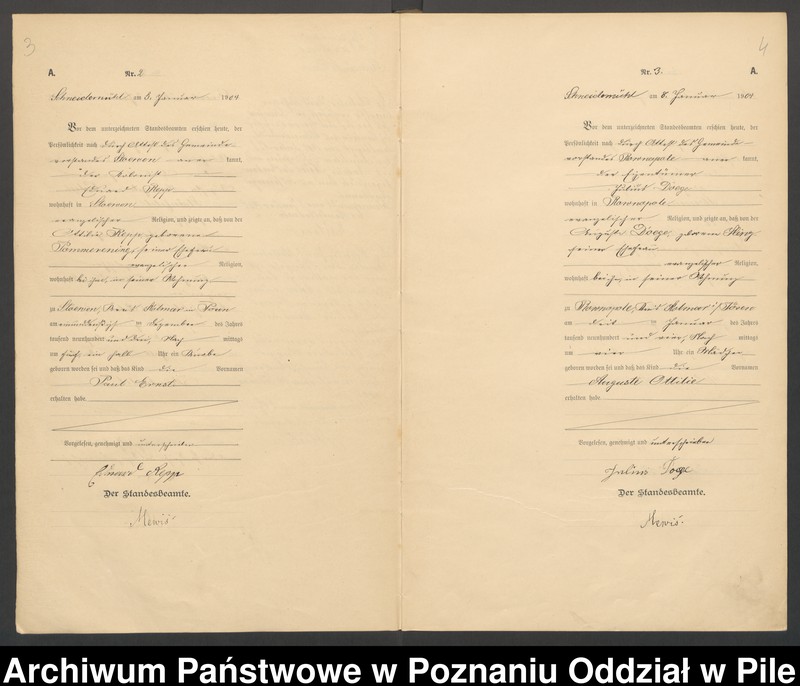 3
A.
Nr. 2
Schneidemühl am 5. Januar 1904
Vor dem unterzeichneten Standesbeamten erschien heute, der
Persönlichkeit nach durch Attest des Gemeinde-
vorstandes Stoewen anerkannt,
der
Eduard Repp
wohnhaft in Stoewen
evangelischer Religion, und zeigte an, daß von der
Ottilie Repp geborene
seiner Ehefrau
evangelischer Religion,
wohnhaft bei ihm, in seiner Wohnung
zu Stoewen, Kreis Kolmar in Posen
am einunddreißigsten Dezember des Jahres
tausend neunhundert und drei, Nachmittags
um fünf ein halb Uhr ein Knabe
geboren worden sei und daß das Kind die Vornamen
Paul Ernst
erhalten habe
Vorgelesen, genehmigt und unterschrieben
Eduard Repp
Der Standesbeamte.
Mewis
4
Nr. 3.
A.
Schneidemühl am 8. Januar 1904
Vor dem unterzeichneten Standesbeamten erschien heute, der
Persönlichkeit nach durch Attest des Gemeinde-
vorstandes anerkannt,
der Eigentümer
Julius Doege
wohnhaft in
evangelischer Religion, und zeigte an, daß von der
Auguste Doege, geborenen
seiner Ehefrau
evangelischer Religion,
wohnhaft bei ihm, in seiner Wohnung
zu Kreis Kolmar i/ Posen
am drei Januar des Jahres
tausend neunhundert und vier, Nachmittags
um vier Uhr ein Mädchen
geboren worden sei und daß das Kind die Vornamen
Auguste Ottilie
erhalten habe
Vorgelesen, genehmigt und unterschrieben
Julius Doege
Der Standesbeamte.
Mewis.
Archiwum Państwowe w Poznaniu Oddział w Pile